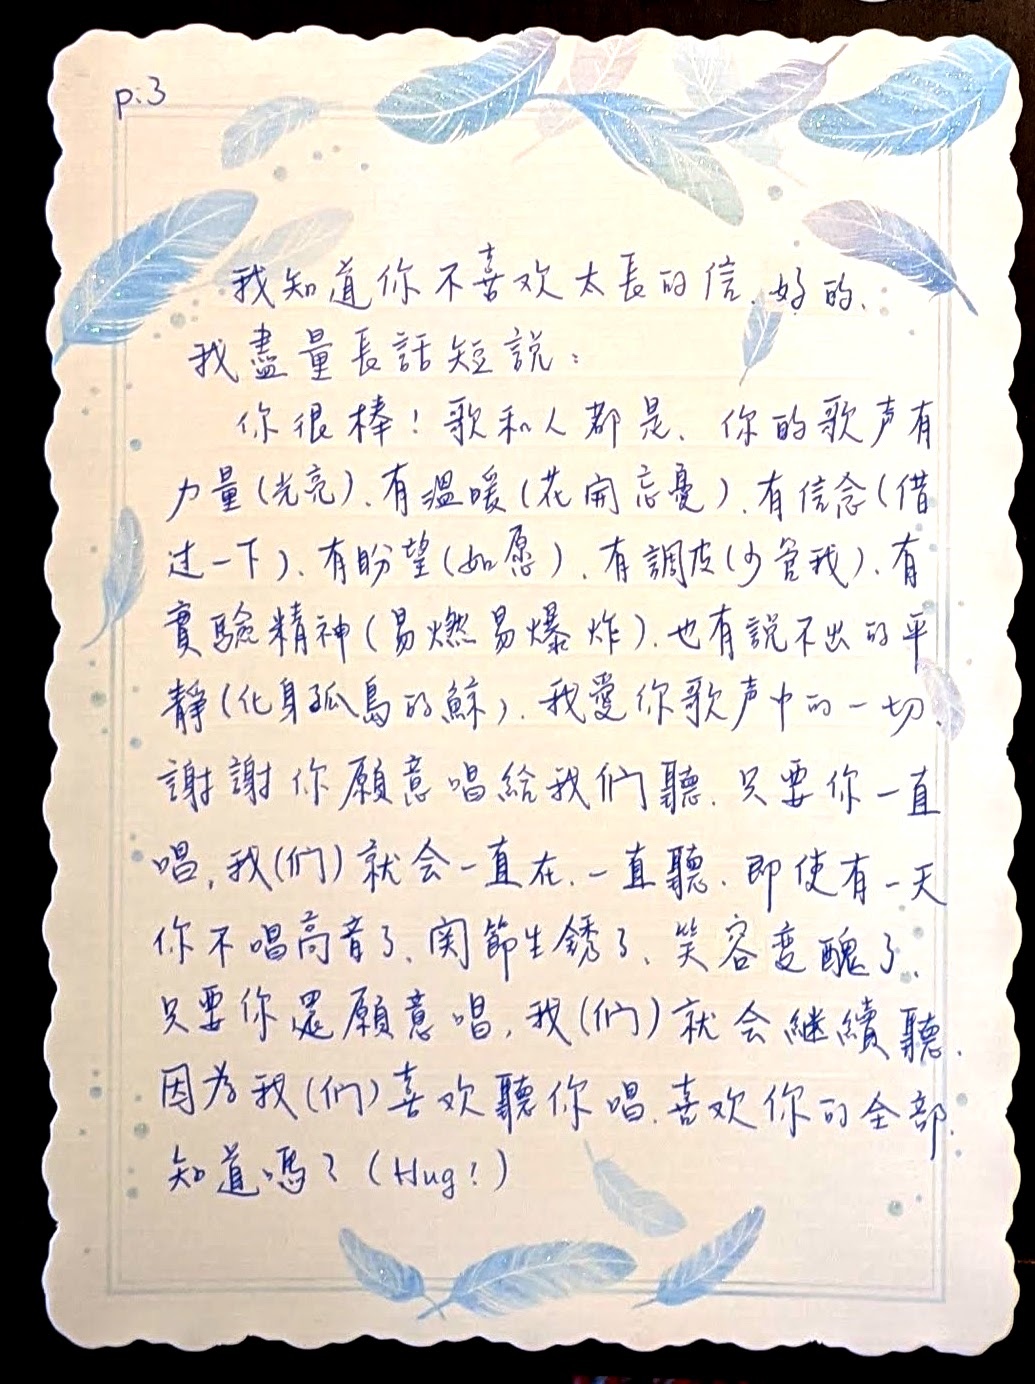 p.3
我知道你不喜欢太長的信.好的.
我盡量長話短說：
你很棒！歌和人都是.你的歌声有
力量(光亮).有溫暖(花開忘憂).有信念(借
过一下).有盼望(如愿).有調皮(少管我).有
實驗精神(易燃易爆炸).也有説不出的平
靜(化身孤島的鯨).我愛你歌声中的一切.
謝謝你願意唱給我们聽.只要你一直
唱,我(们)就会一直在.一直聽.即使有一天
你不唱高音了.関節生銹了.笑容変醜了.
只要你還願意唱,我(们)就会継續聽.
因为我(们)喜欢聽你唱.喜欢你的全部.
知道嗎？(Hug!)